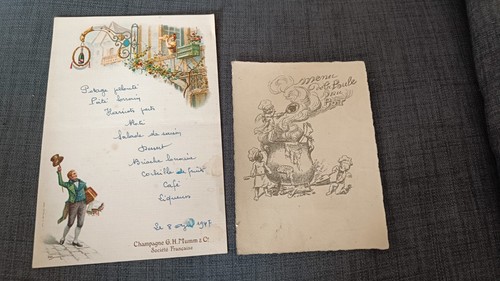 Potage velouté
Pâté lorrain
Haricots verts
Rôti
Salade de saison
Dessert
Brioche lorraine
Corbeille de fruits
Café
Liqueurs
le 8 1947
Champagne G. H. Mumm & Co
Société Française
menu
de la Poule
au
Pot